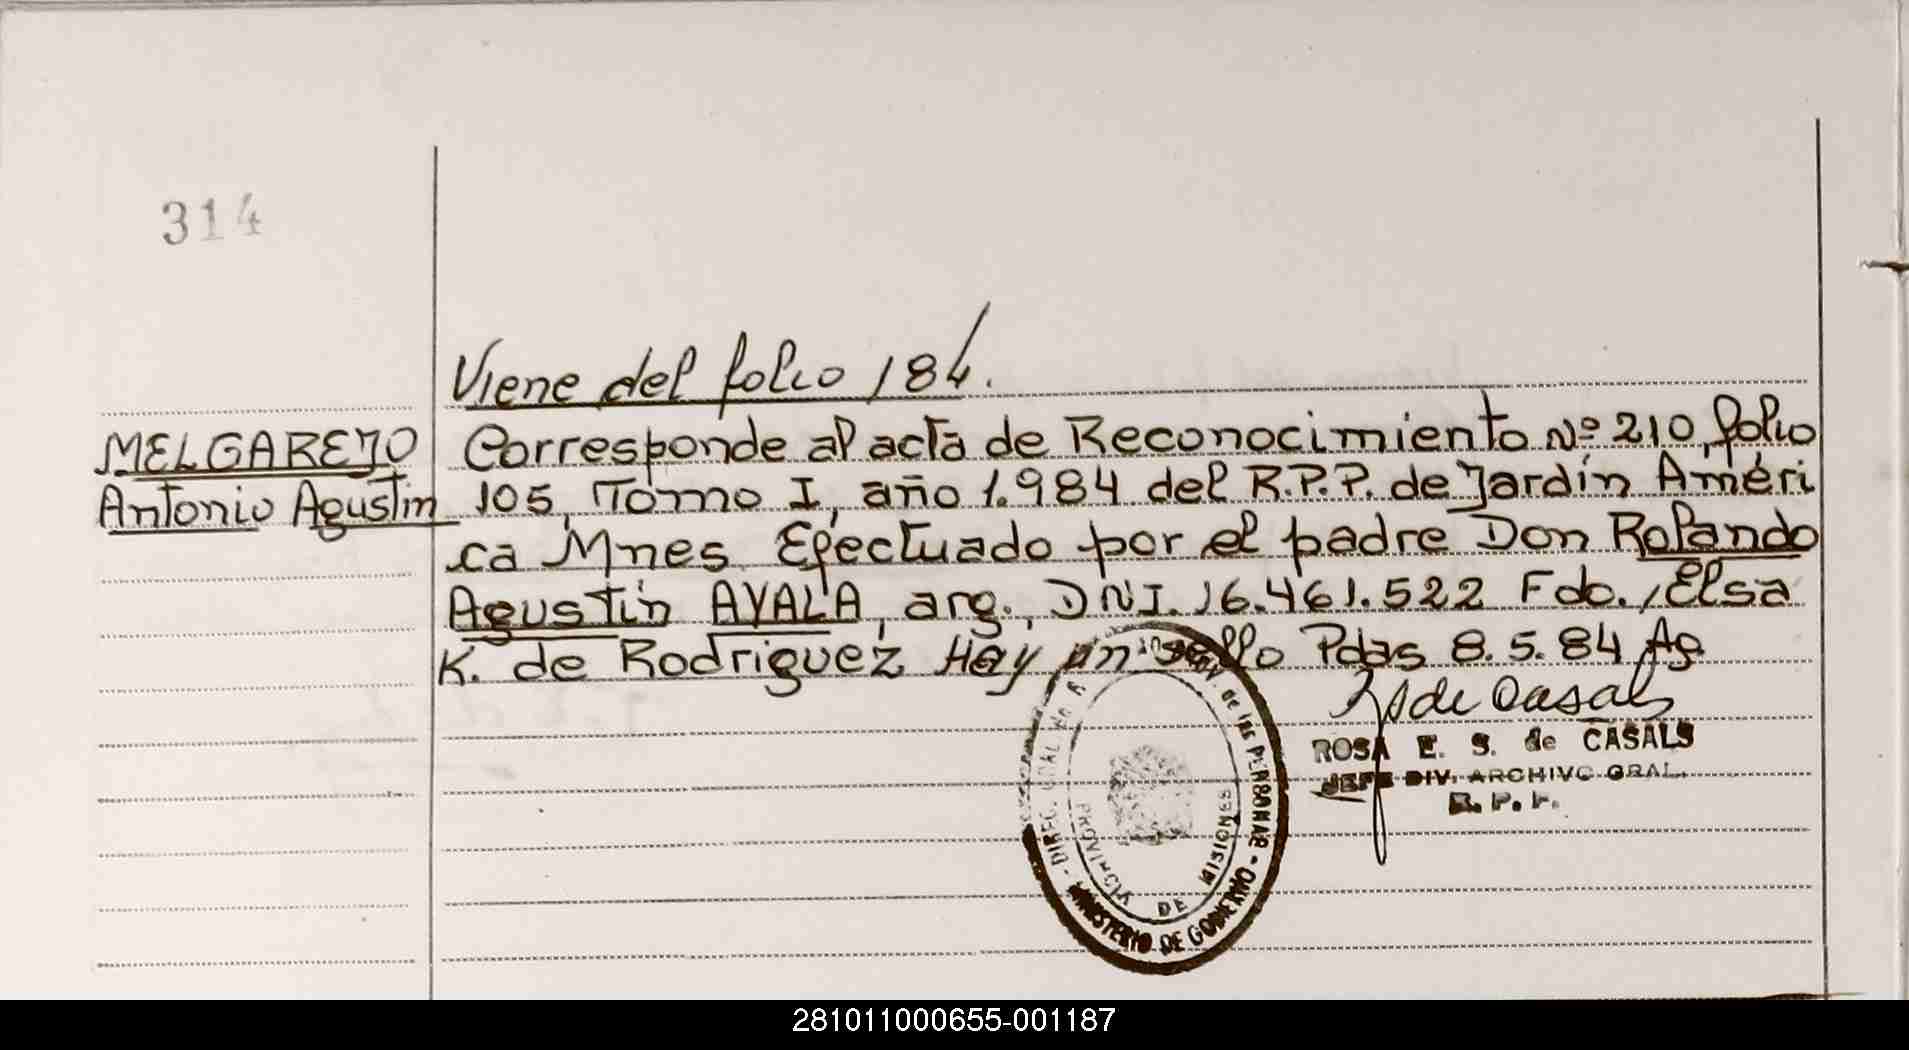 314
Viene del folio 184.
MELGAREJO
Antonio Agustin
Corresponde al acta de Reconocimiento Nº 210, folio
105, Tomo I, año 1.984 del R.P.P. de Jardín Améri
ca Mnes. Efectuado por el padre Don Rolando
Agustín AYALA, arg., DNI. 16.461.522 Fdo., Elsa
K. de Rodriguez Hay un sello Pdas 8.5.84 Ag.
de Casals
ROSA E. S. de CASALS
JEFE DIV. ARCHIVO GRAL.
R. P. P.
DE LAS PERSONAS - MINISTERIO DE GOBIERNO -
PROVINCIA DE MISIONES
281011000655-001187